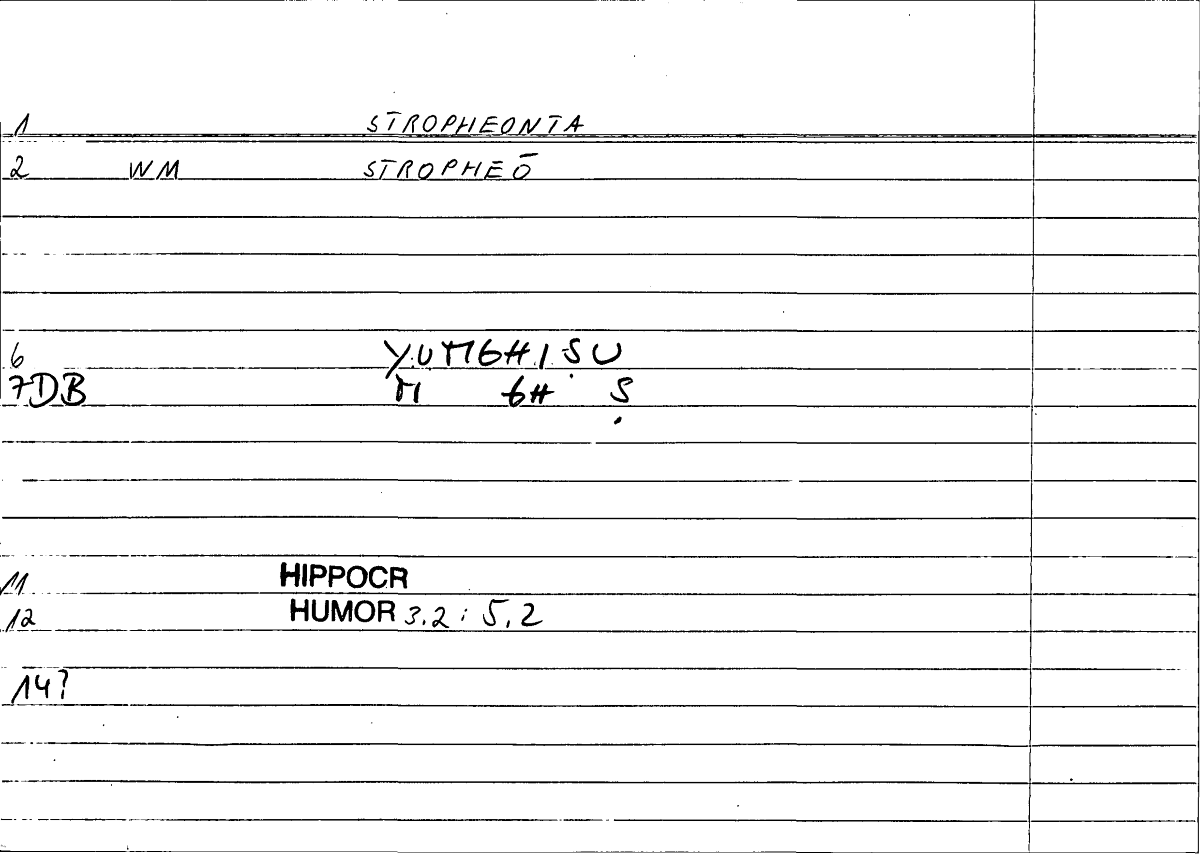 1 STROPHEONTA
2 WM STROPHEŌ
6 YUMGHIṢU
7DB M GH Ṣ
11 HIPPOCR
12 HUMOR 3.2; 5.2
14?